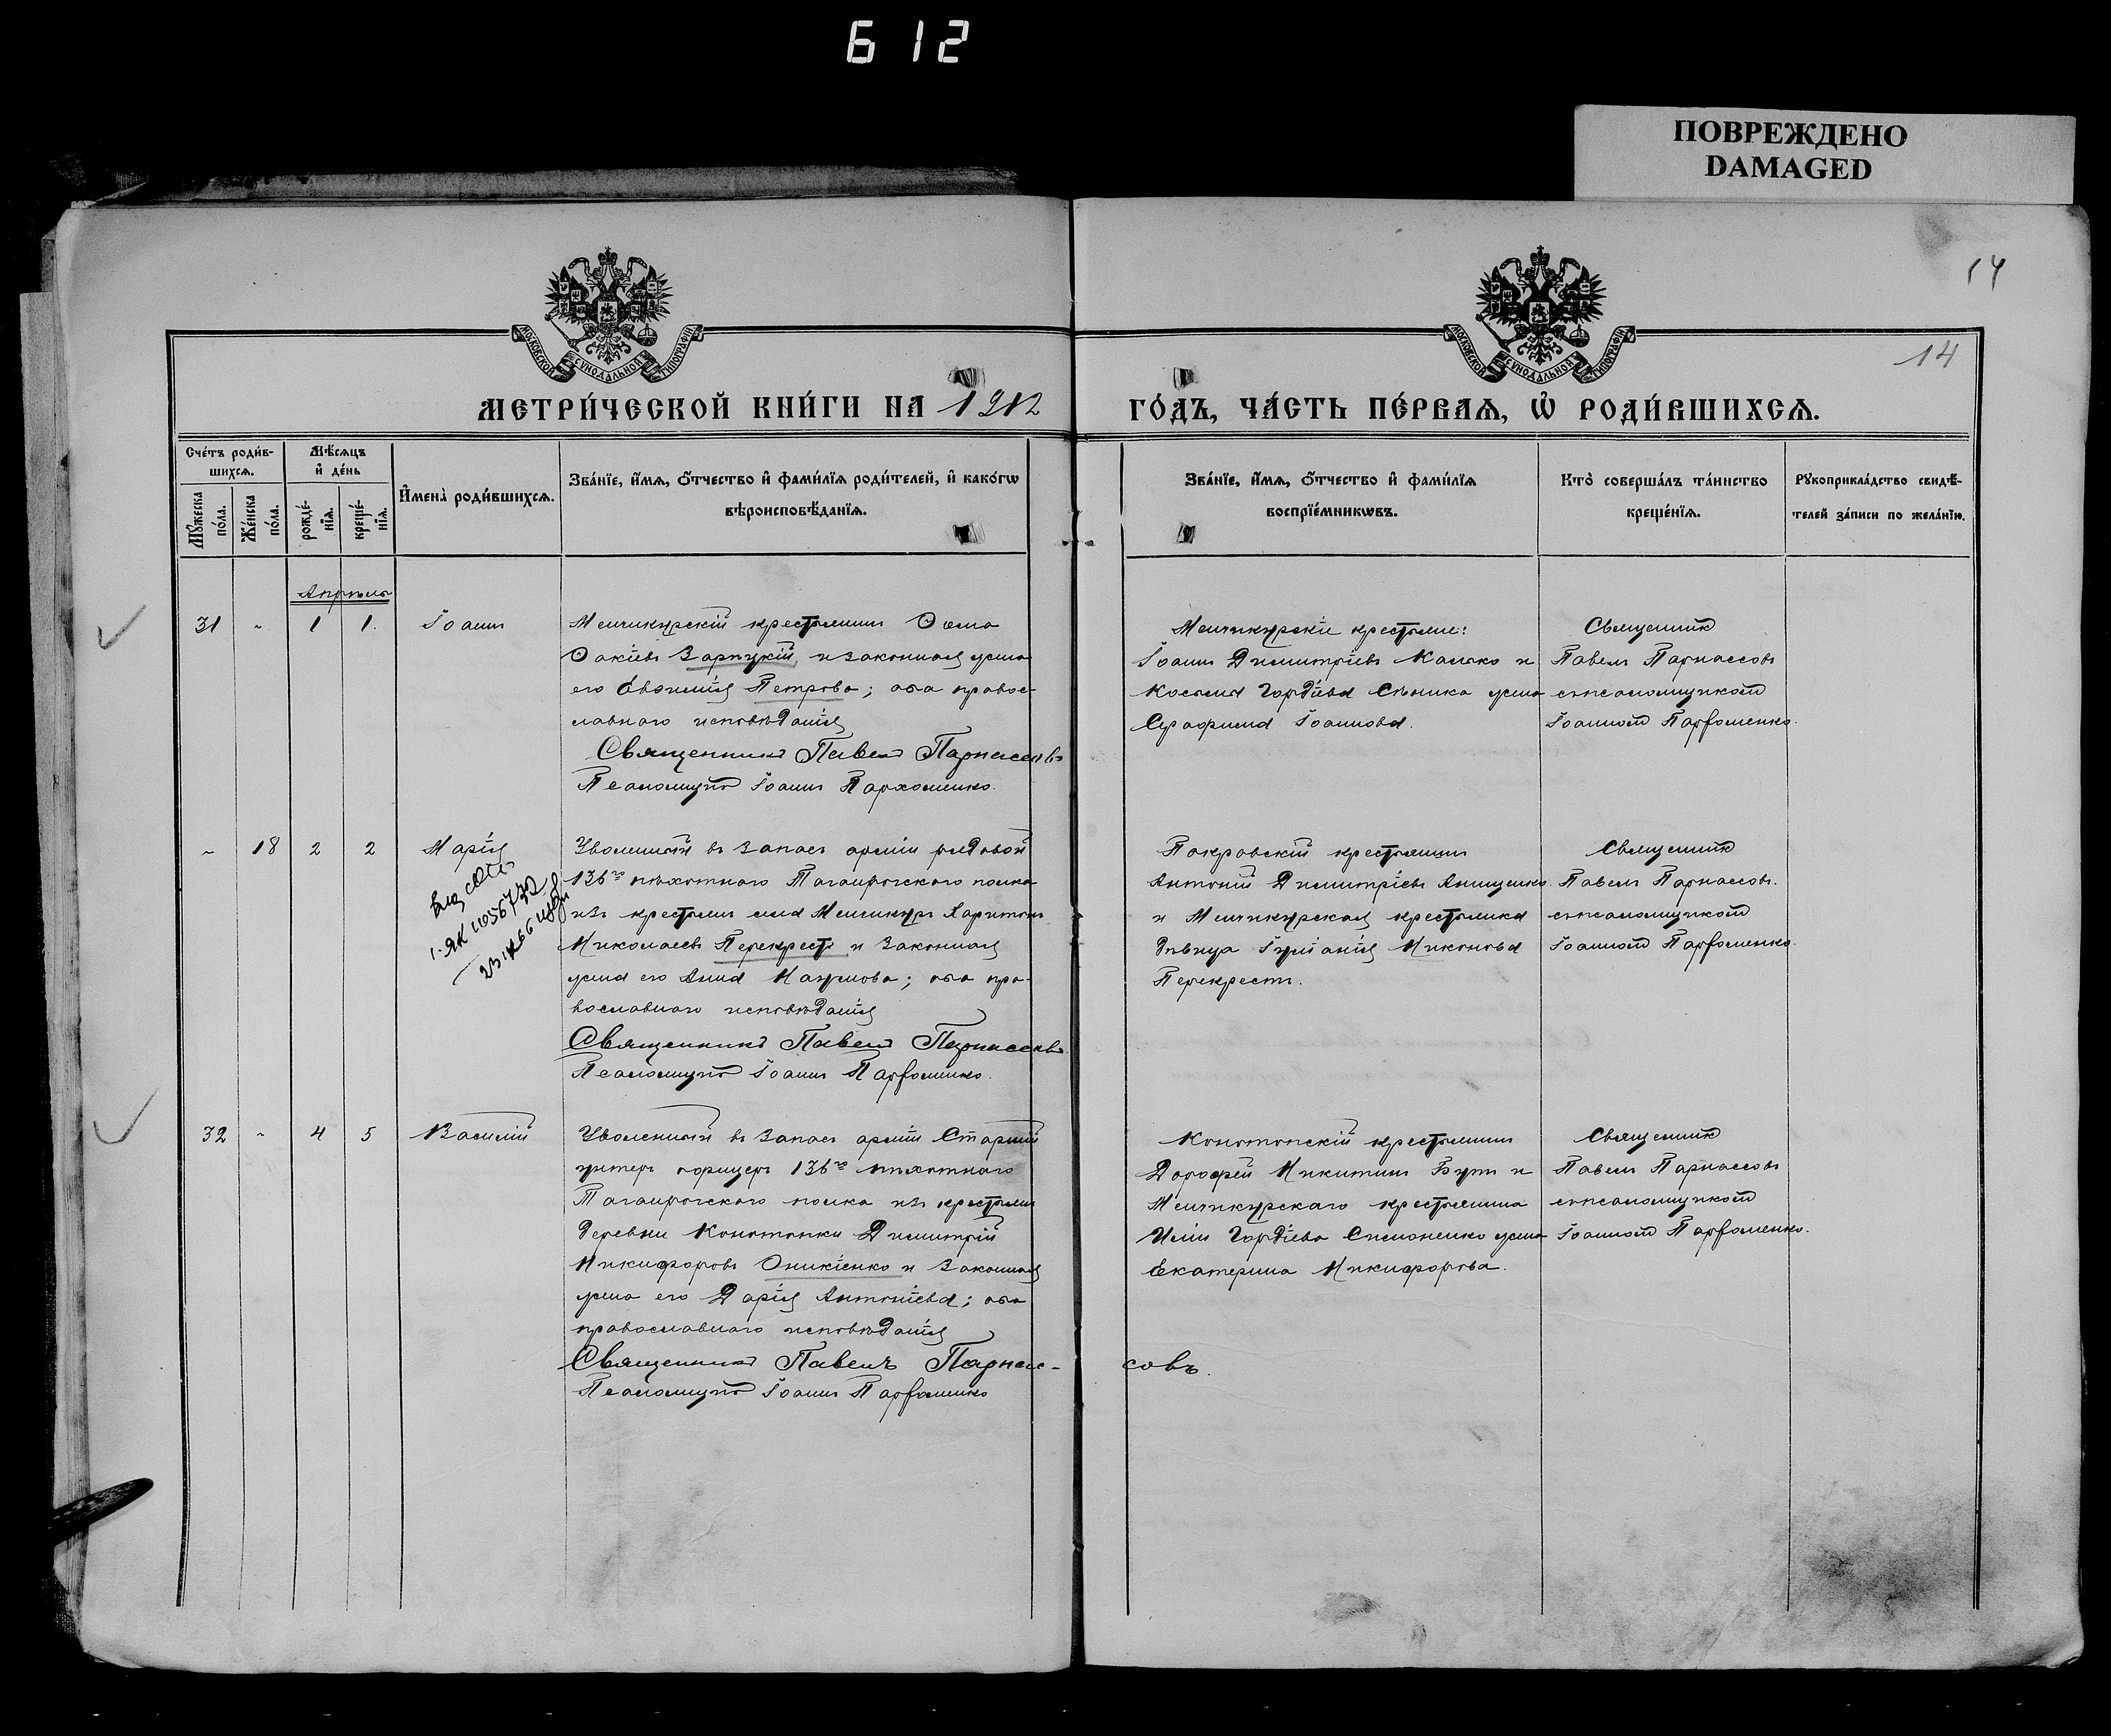 612
ПОВРЕЖДЕНО
DAMAGED
14
14
МОСКОВСКОЙ СѴНОДАЛЬНОЙ ТИПОГРАФІИ
МОСКОВСКОЙ СѴНОДАЛЬНОЙ ТИПОГРАФІИ
МЕТРИ́ЧЕСКОЙ КНИ́ГИ НА 1912 ГО́ДЪ, ЧА́СТЬ ПЕ́РВАѦ, Ѡ҆ РОДИ́ВШИХСѦ.
Сче́тъ роди́в-
шихсѧ.
Мꙋ́жеска по́ла.
Же́нска по́ла.
Мѣ́сѧцъ
и҆ де́нь
рожде́-
нїѧ.
креще́-
нїѧ.
И҆мена̀ роди́вшихсѧ.
Зва́нїе, и҆́мѧ, ѻ҆́тчество и҆ фами́лїѧ роди́телей, и҆ како́гѡ
вѣроисповѣ́данїѧ.
Зва́нїе, и҆́мѧ, ѻ҆́тчество и҆ фами́лїѧ
воспрїе́мникѡвъ.
Кто̀ соверша́лъ та́инство
креще́нїѧ.
Рꙋкоприкла́дство свидѣ́-
телей за́писи по жела́нїю.
Апрѣль
31 " 1 1. Іоаннъ
Менчикурскій крестьянинъ Ѳома
Ѳокіевъ Зарицкій, и законная жена
его Евфимія Петрова; оба правос-
лавнаго исповѣданія
Священникъ Павелъ Парнассовъ
Псаломщикъ Іоаннъ Пархоменко.
Менчикурскіе крестьяне:
Іоаннъ Димитріевъ Калько и
Косьмы Гордѣева Сѣника жена
Серафима Іоаннова.
Священникъ
Павелъ Парнассовъ
съ псаломщикомъ
Іоанномъ Парѳоменко.
" 18 2 2 Марія
Уволенный въ запасъ арміи рядовой
136го пѣхотнаго Таганрогскаго полка
изъ крестьянъ села Менчикуръ Харитонъ
Николаевъ Перекрестъ и законная
жена его Анна Наумова; оба пра-
вославнаго исповѣданія
Священникъ Павелъ Парнассовъ.
Псаломщикъ Іоаннъ Парѳоменко.
Покровскій крестьянинъ
Антоній Димитріевъ Анищенко
и Менчикурская крестьянка
дѣвица Іуліанія Никонова
Перекрестъ.
Священникъ
Павелъ Парнассовъ.
съ псаломщикомъ
Іоанномъ Парѳоменко.
32 " 4 5 Василій
Уволенный въ запасъ арміи Старшій
унтеръ офицеръ 136го пѣхотнаго
Таганрогскаго полка изъ крестьянъ
деревни Конотопки Димитрій
Никифоровъ Оникіенко и законная
жена его Дарія Антоніева; оба
православнаго исповѣданія
Священникъ Павелъ Парнас-
совъ.
Псаломщикъ Іоаннъ Парѳоменко
Конотопскій крестьянинъ
Дороѳей Никитинъ Бутъ и
Менчикурскаго крестьянина
Иліи Гордѣева Симоненко жена
Екатерина Никифорова.
Священникъ
Павелъ Парнассовъ
съ псаломщикомъ
Іоанномъ Парѳоменко.